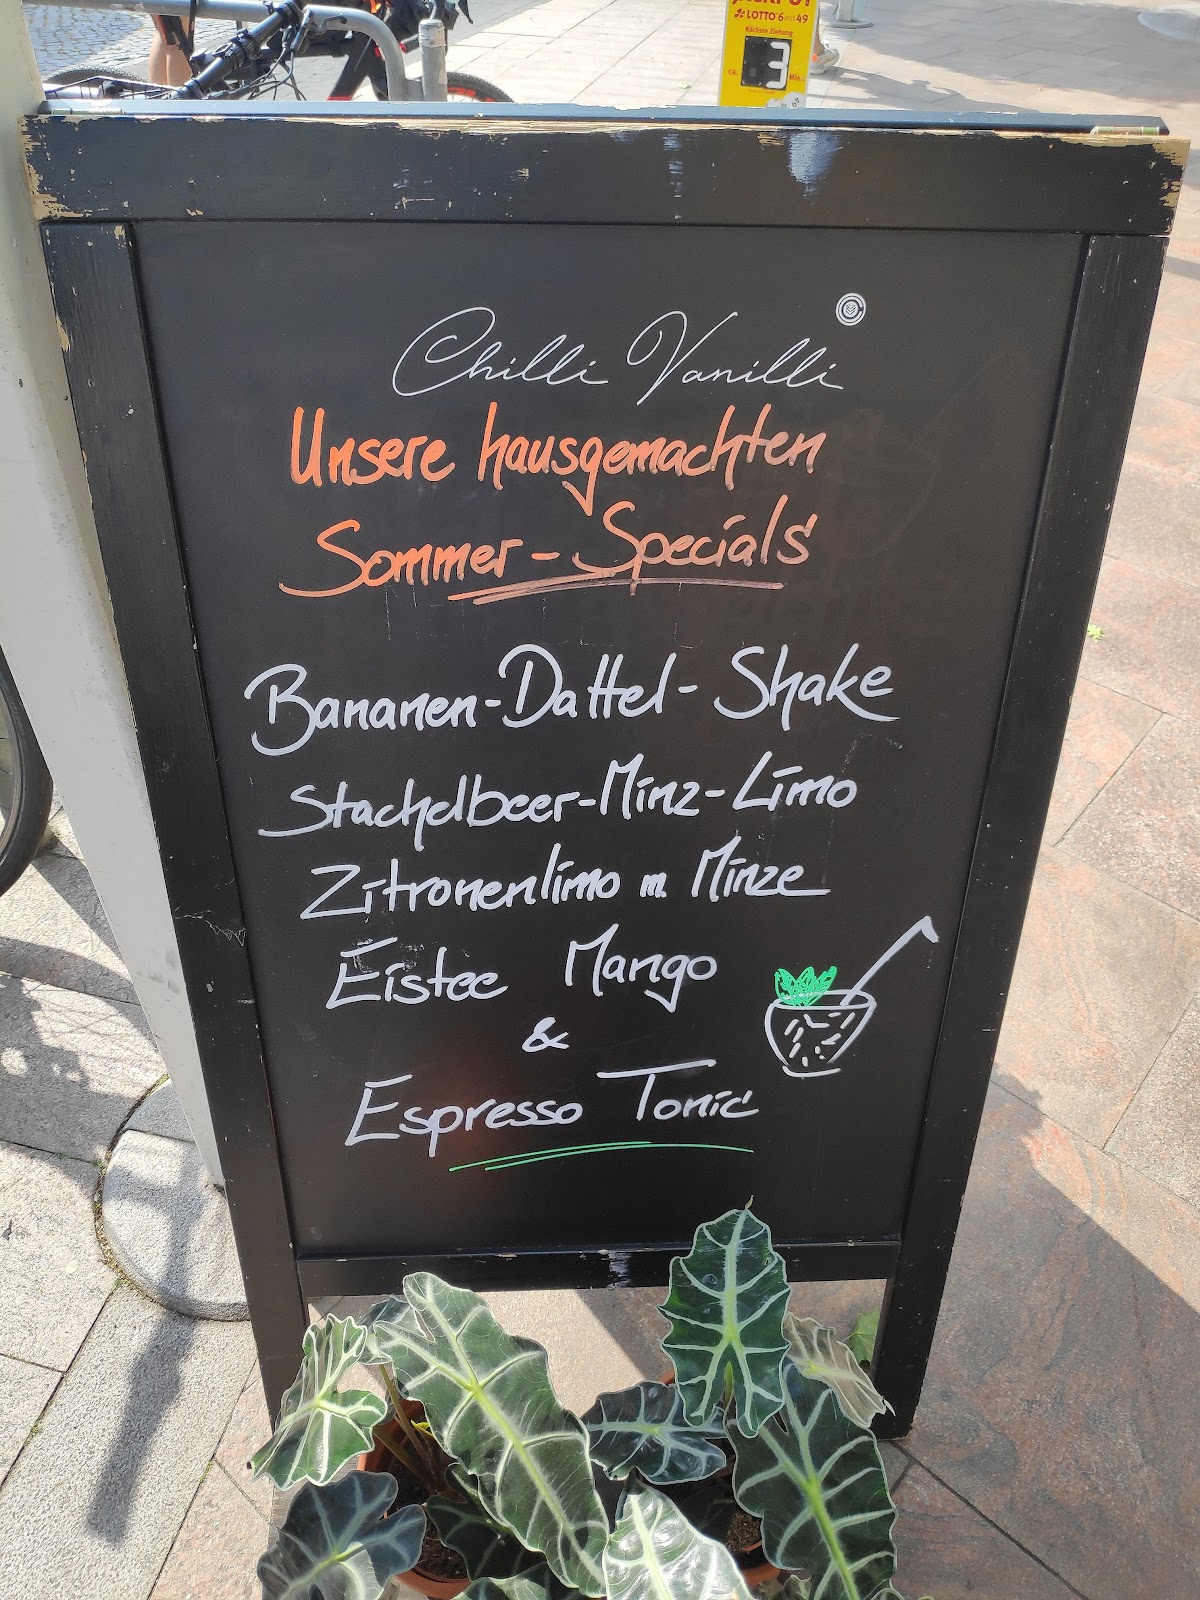 JACKPOT
LOTTO 6aus49
Nächste Ziehung
ca. 3 Mio.
Chilli Vanilli
Unsere hausgemachten
Sommer-Specials
Bananen-Dattel-Shake
Stachelbeer-Minz-Limo
Zitronenlimo m. Minze
Eistee Mango
&
Espresso Tonic